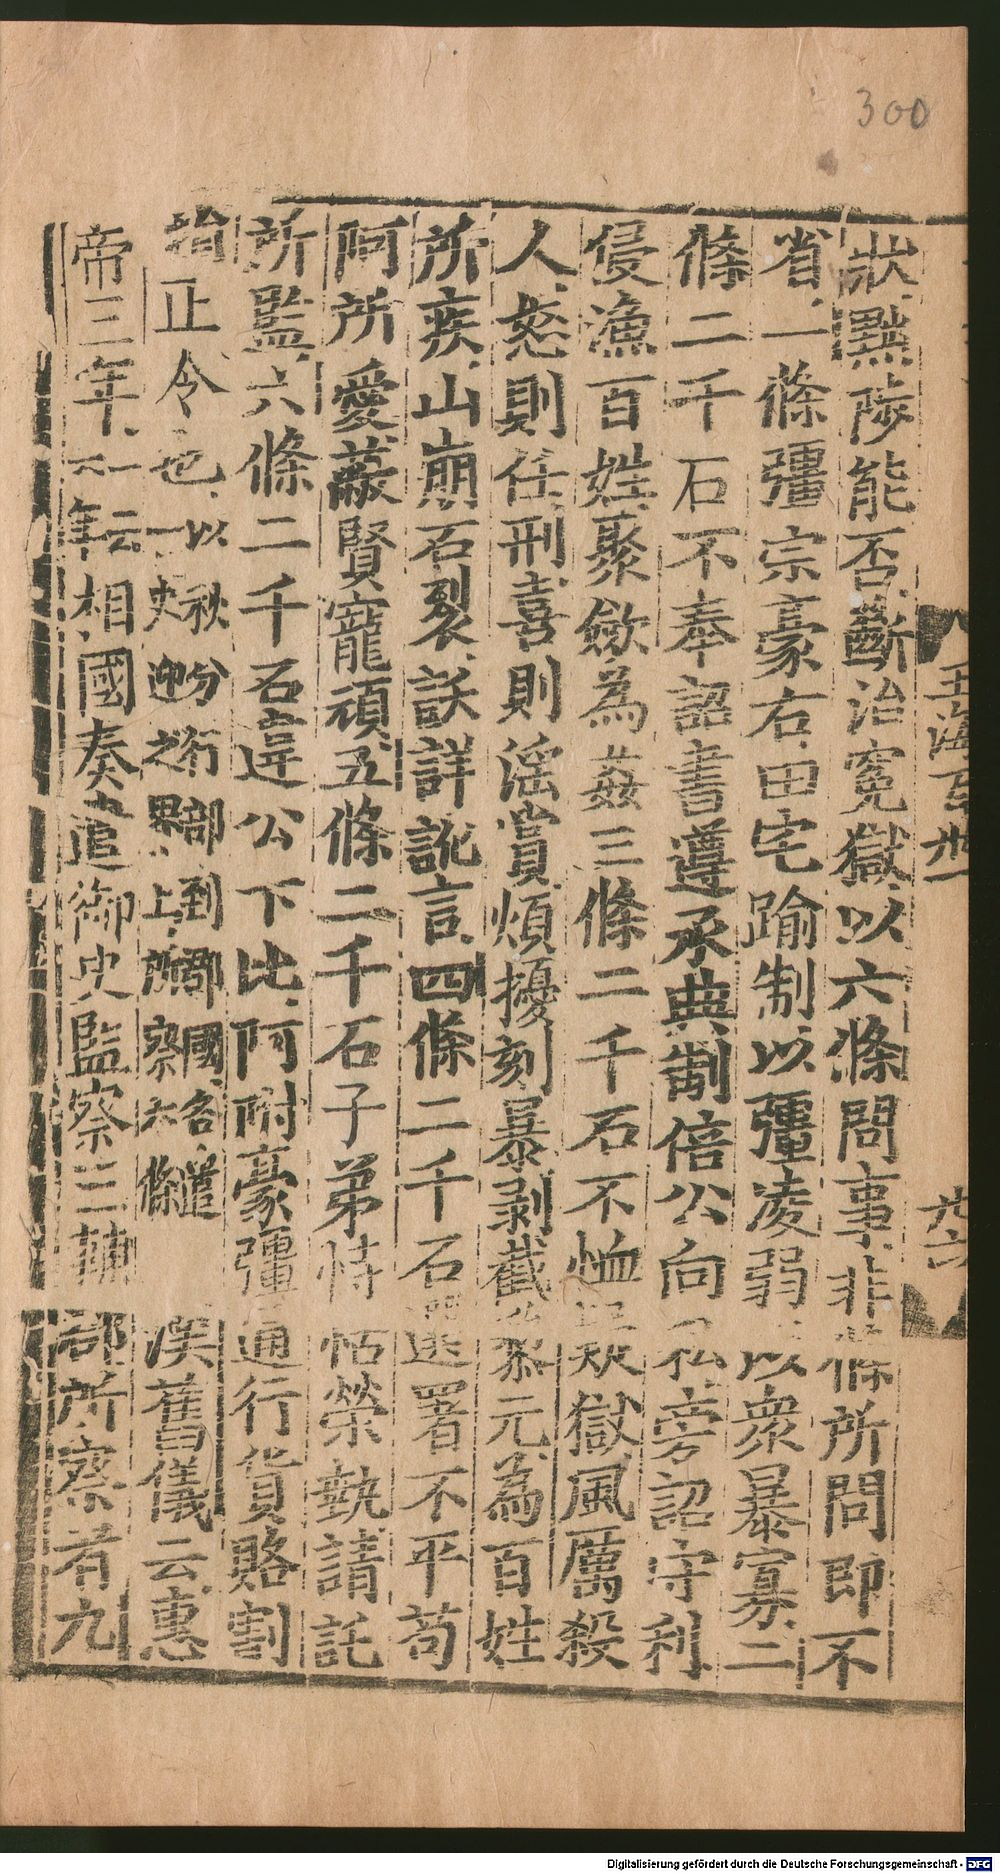 300
玉海百卅一
卅六
狀黜陟能否斷治寃獄以六條問事非條所問即不
省一條彊宗豪右田宅踰制以彊凌弱以衆暴寡二
條二千石不奉詔書遵承典制倍公向私旁詔守利
侵漁百姓聚斂為姦三條二千石不恤疑獄風厲殺
人怒則任刑喜則淫賞煩擾刻暴剥截黎元為百姓
所疾山崩石裂訞詳訛言四條二千石選署不平苟
阿所愛蔽賢寵頑五條二千石子弟恃怙榮埶請託
所監六條二千石違公下比阿附豪彊通行貨賂割
損正令也以秋分行部到郡國各遣一吏迎之界上所察六條漢舊儀云惠
帝三年一云六年相國奏遣御史監察三輔郡所察有九
Digitalisierung gefördert durch die Deutsche Forschungsgemeinschaft - DFG